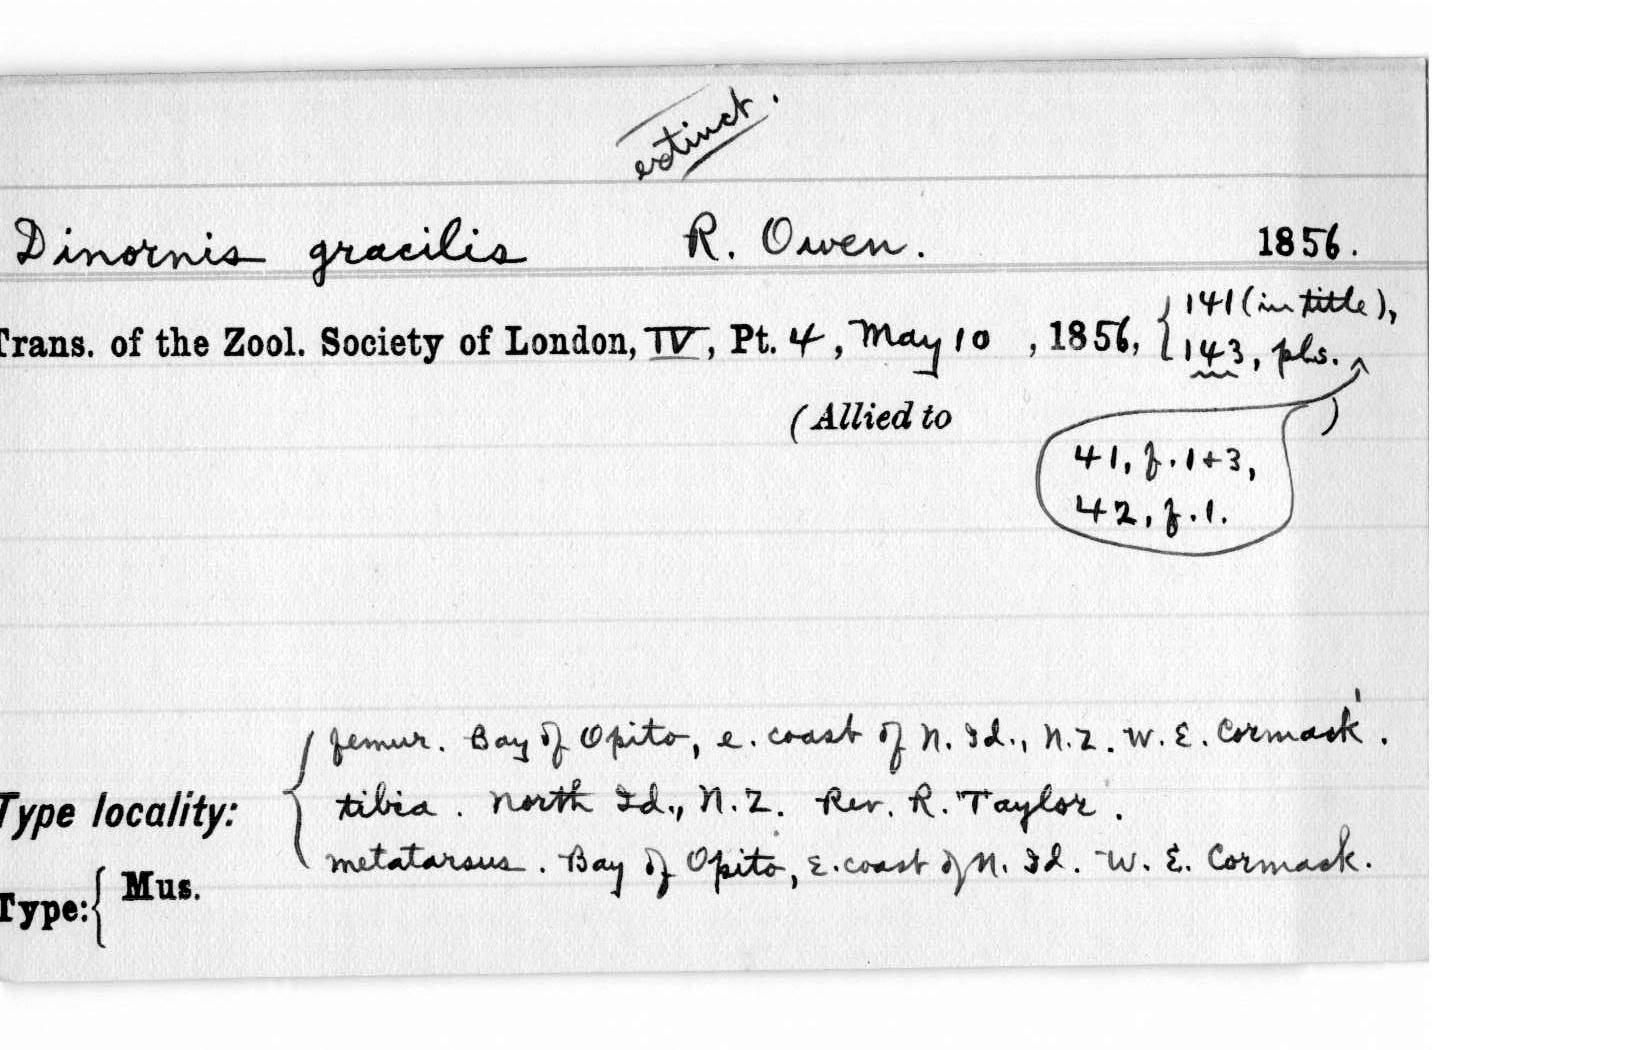 extinct.
Dinornis gracilis R. Owen. 1856.
Trans. of the Zool. Society of London, IV, Pt. 4, May 10, 1856, { 141 (in title),
143, pls.
(Allied to )
41, f. 1+3,
42, f. 1.
femur. Bay of Opito, e. coast of N. Id., N.Z. W. E. Cormack.
Type locality: { tibia. North Id., N.Z. Rev. R. Taylor.
metatarsus. Bay of Opito, E. coast of N. Id. W. E. Cormack.
Type: { Mus.